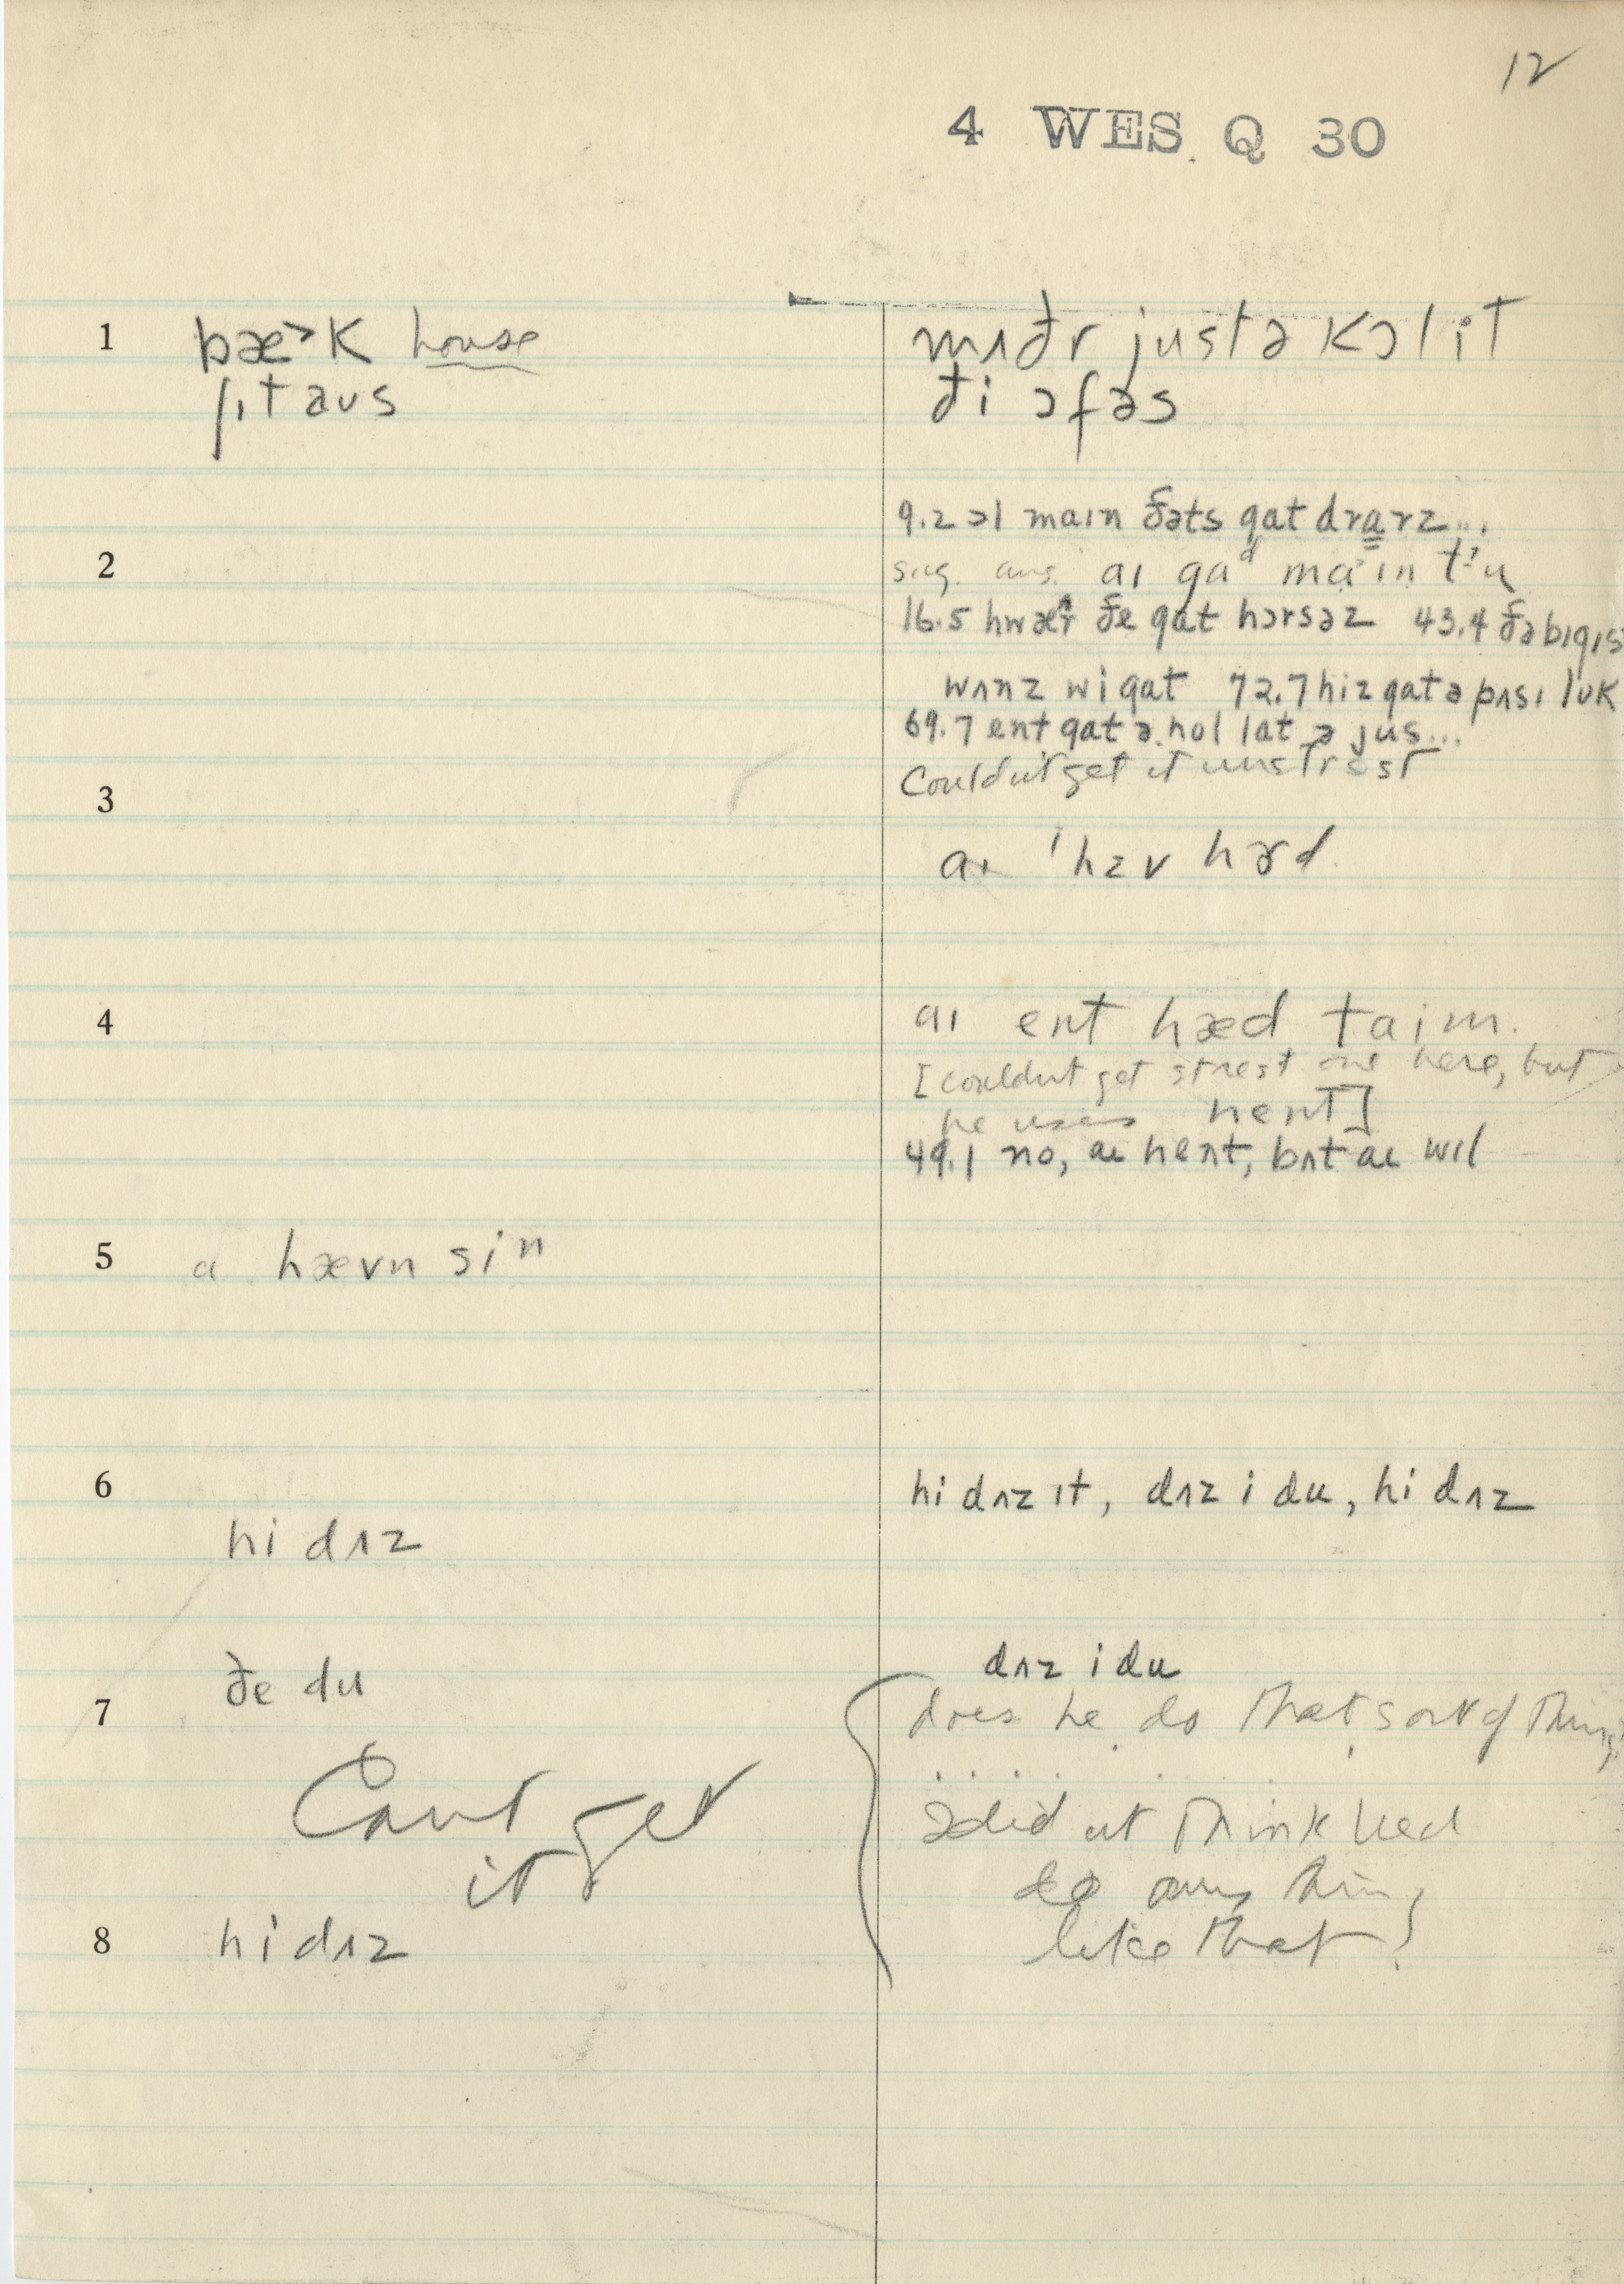 12
4 WES Q 30
1 bæ˃k house
ʃɪtaus
mʌðr justə kɔl it
ði ɔfəs
9.2 ɔl maɪn ðəts gat drɑrz...
2
sug. ans. aɪ gaᵈ maˑɪn t'u
16.5 hwær ðe gat hɔrsəz 43.4 ðə bɪgɪs
wʌnz wi gat 72.7 hiz gat ə pʌsɪ lʊk
69.7 ent gat ə hol lat ə jus...
Couldn't get it unstrest
3
aɪ 'hɛv hɚd
4 aɪ ent hæd taim.
[couldnt get strest one here, but
he uses hent]
49.1 no, aɪ hent, bʌt aɪ wɪl
5 a hævn sin
6 hi dʌz ɪt, dʌz i du, hi dʌz
hi dʌz
ðe du
dʌz i du
7
does he do that sort of thing
Cant get
it
didnt think he'd
do any thing
like that?
8 hi dʌz